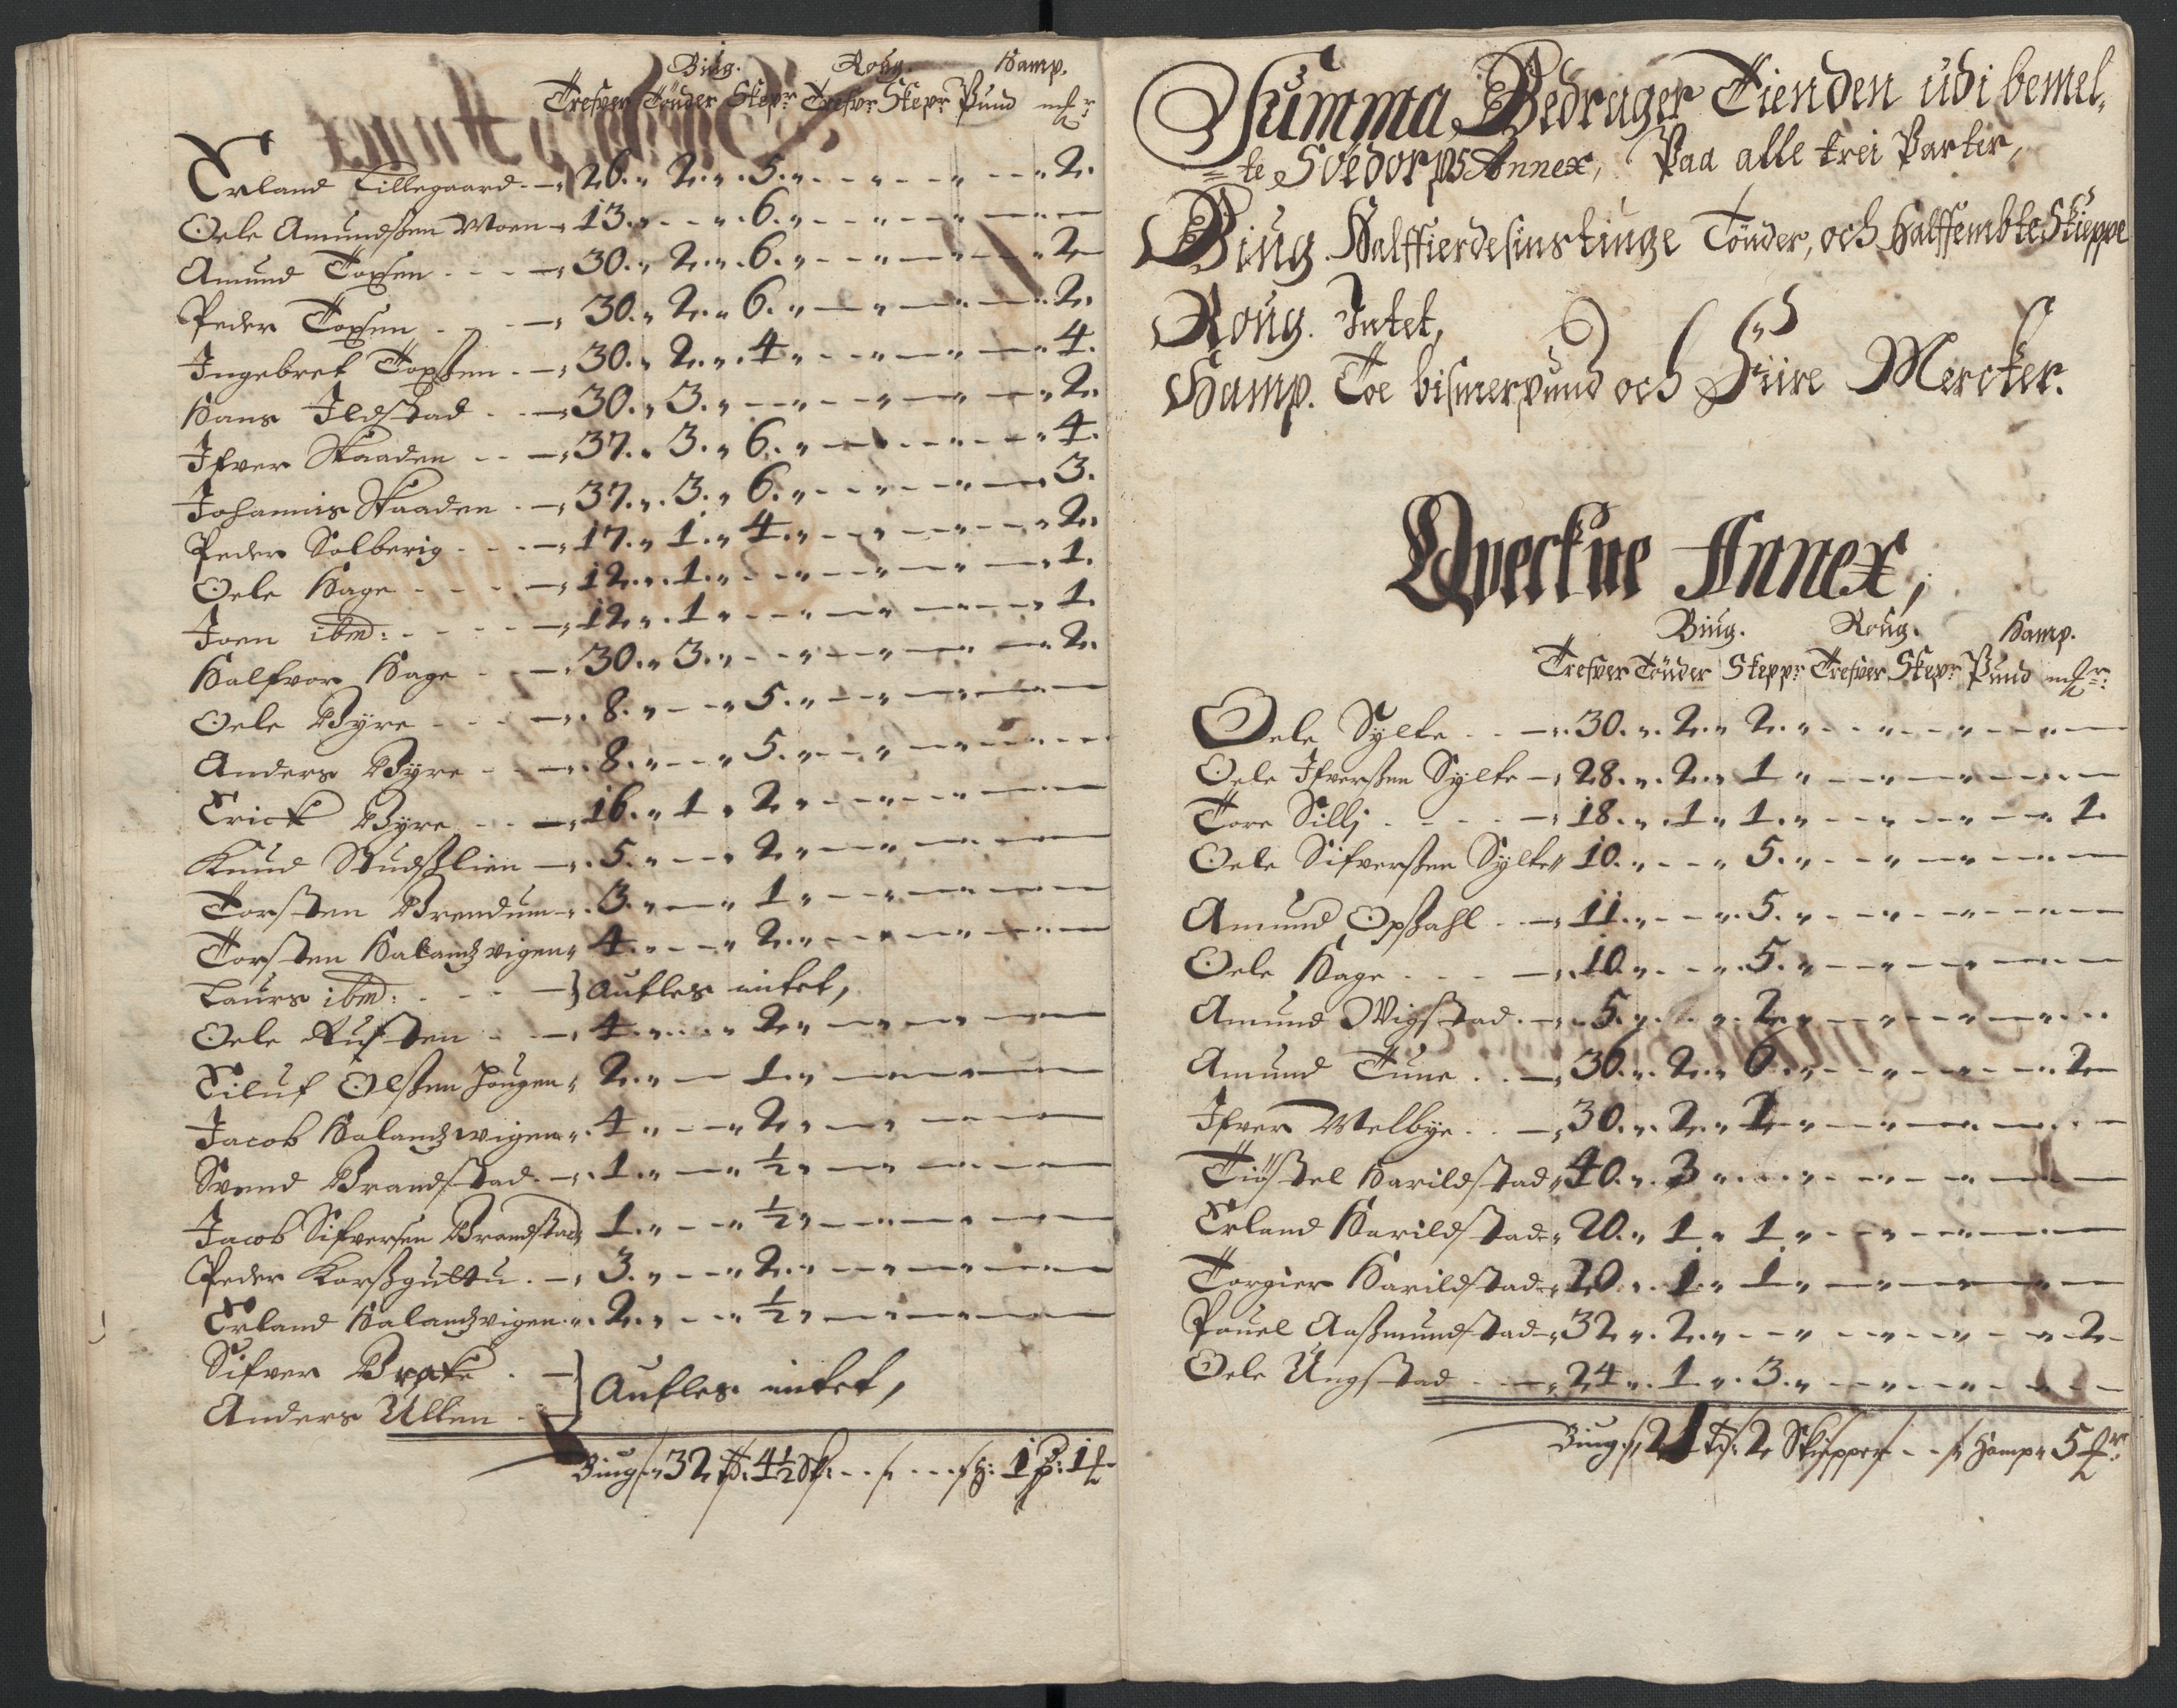 Biug. Roug. Hamp.
Trefver Tönder Skepr Trefvr Skepr Pund mkr
Erland Tillegaard 26. 2. 5. 2.
Oele Amundsßen Moen 13. 6.
Amund Toxsen 30. 2. 6. 2
Peder Toxsen 30. 2. 6. 2.
Ingebret Toxßen 30. 2. 4 4.
Hans Ildstad 30. 3. 2.
Ifver Skaaden 37. 3. 6. 4.
Johannis Skaaden 37. 3. 6. 3.
Peder Solberig 17. 1. 4. 2.
Oele Hage 12. 1. 1.
Joen ibid: 12. 1 1.
Halfvor Hage 30. 3. 2.
Oele Byre 8. 5.
Anders Byre 8. 5.
Erick Byre 16. 1 2
Knud Rudßlien 5. 2
Torsten Brendum 3. 1
Torsten Halandz vigen 4. 2.
Laurs ibid: } Aufles intet,
Oele Rusten 4. 2
Eiluf Olßen Hougen 2. 1.
Jacob Halandzwigen 4 2
Svend Brandstad 1. ½
Jacob Sifversen Brandstad 1. ½
Peder Korßgultu 3. 2.
Erland Halandzvigen 2. ½
Sifver Brake
Anders Ullen } Aufles intet,
Biug 32 T: 4½ Sk: H: 1 p: 1
Summa Bedrager Tienden udi bemel,
=te Södorps Annex, Paa alle trei Parter,
Biug. Halffierdesinstiuge Tönder, och Halffembte Skieppe
Roug. Intet,
Hamp. Toe bismerpund och Fiire Mercker.
Qveckne Annex,
Biug. Roug. Hamp.
Trefver Tönder Skeppr Trefver Skepr Pund mkr:
Oele Sylte 30. 2. 2.
Oele Ifverßen Sylte 28. 2. 1
Tore Sillj 18. 1 1. 1.
Oele Sifverßen Sylte 10. 5.
Amund Opßahl 11. 5.
Oele Hage 10. 5.
Amund Wigstad 5. 2
Amund Tune 36. 2. 6 2
Ifver Melbye 30. 2. 2
Tiöstel Harildstad 40. 3
Erland Harildstad 20. 1 1
Torgier Harildstad 20. 1. 1
Pouel Aaßmundstad 32 2. 2
Oele Ungstad 24. 1. 3.
Biug 21 T: 2 Skiepper Hamp 5